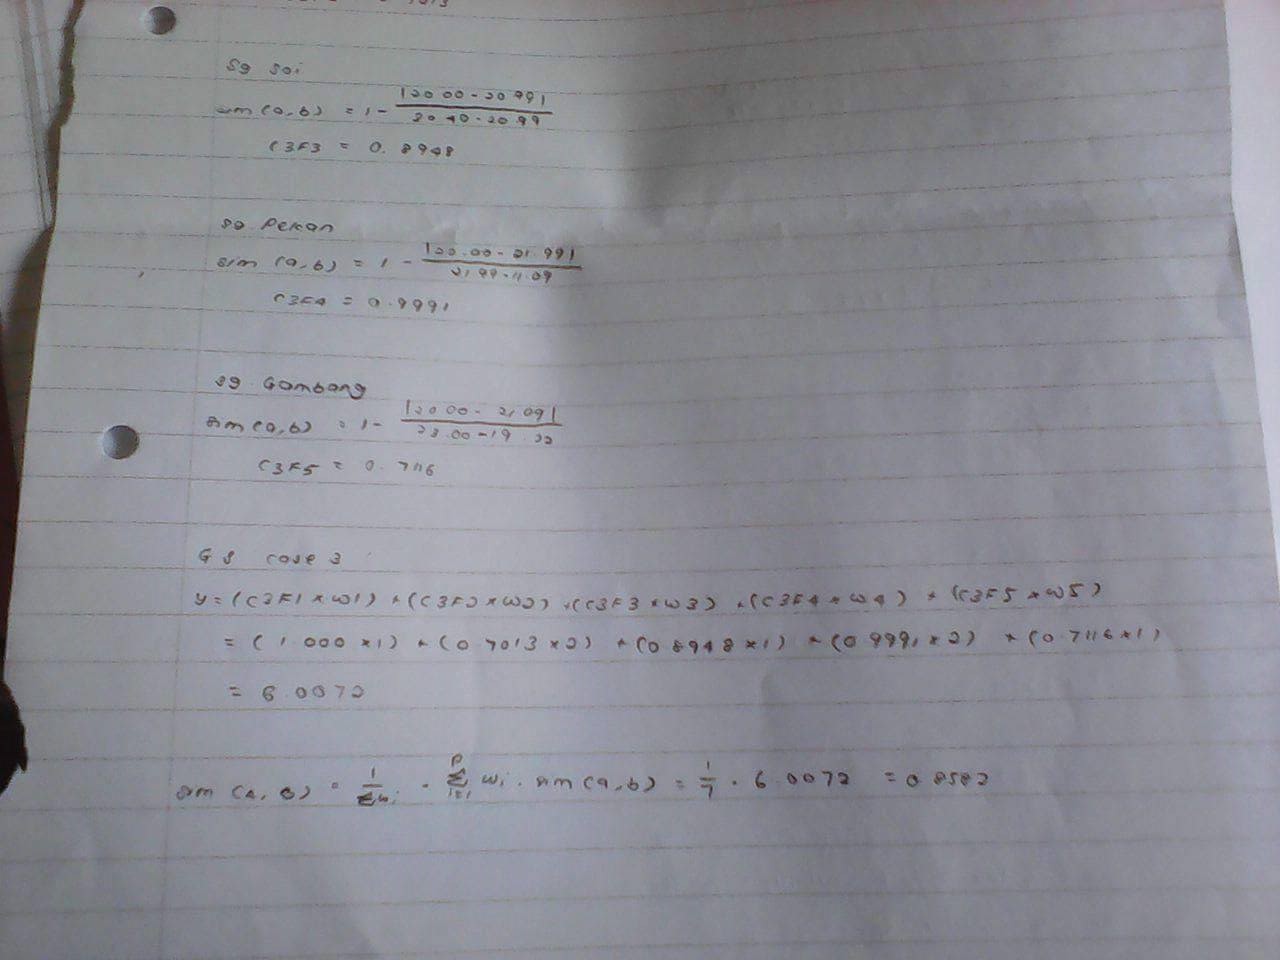 Sg Soi
sim (a,b) = 1 - |20.00 - 20.99| / 30.40 - 20.99
C3F3 = 0.8948
Sg. Pekan
sim (a,b) = 1 - |22.00 - 21.99| / 21.99 - 11.09
C3F4 = 0.9991
Sg Gambang
sim (a,b) = 1 - |20.00 - 21.09| / 23.00 - 19.22
C3F5 = 0.7116
GS case 3
y = (C3F1 x w1) + (C3F2 x w2) + (C3F3 x w3) + (C3F4 x w4) + (C3F5 x w5)
= (1.000 x 1) + (0.7013 x 2) + (0.8948 x 1) + (0.9991 x 2) + (0.7116 x 1)
= 6.0072
sim (A, B) = 1/Σwi · p Σ i=1 wi · sim (a,b) = 1/7 · 6.0072 = 0.8582